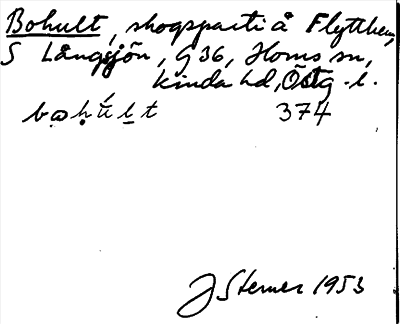 Bohult, skogsparti å Flytthem,
S Långsjön, g 36, Horns sn,
Kinda hd, Östg. l.
374
J Sterner 1953